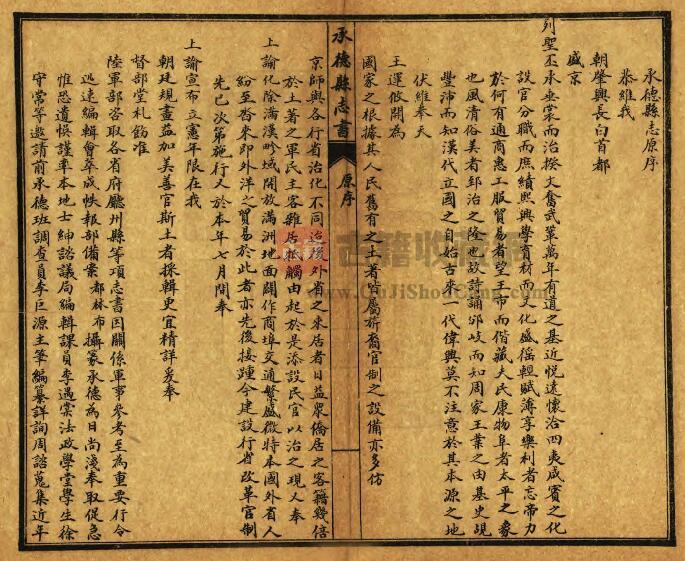 承德縣志原序
恭維我
朝肇興長白首都
盛京
列聖丕承垂裳而治揆文奮武鞏萬年有道之基近悅遠懷洽四夷咸賓之化
設官分職而庶績熙興學育材而人文盛徭輕賦薄享樂利者忘帝力
於何有通商惠工服貿易者望王市而偕藏夫民康物阜者太平之象
也風清俗美者郅治之隆也故詩誦邠岐而知周家王業之由基史覘
豐沛而知漢代立國之自始古來一代偉興莫不注意於其本源之地
伏維奉天
王運攸開為
國家之根據其人民舊有之土著皆屬旂裔官制之設備亦多仿
承德縣志書
原序
京師與各行省治化不同迨後外省之來居者日益眾僑居之客籍幾倍
於土著之軍民主客雜居牴觸由起於是添設民官以治之現又奉
上諭化除滿漢畛域開放滿洲地面闢作商埠交通繁盛微特本國外省人
紛至沓來即外洋之貿易於此者亦先後接踵今建設行省改革官制
先已次第施行又於本年七月間奉
上諭宣布立憲年限在我
朝廷規畫益加美善官斯土者採輯更宜精詳爰奉
督部堂札飭准
陸軍部咨取各省府廳州縣等項志書因關係軍事參考至為重要行令
迅速編輯會萃成帙報部備案都林布攝篆承德為日尚淺奉取促急
惟恐遺悞謹率本地士紳諮議局編輯課員李遇棠法政學堂學生徐
守常等邀請前承德班調查員李巨源主筆編纂詳詢周諮蒐集近年
古籍收藏網
www.GuJiShouCang.com